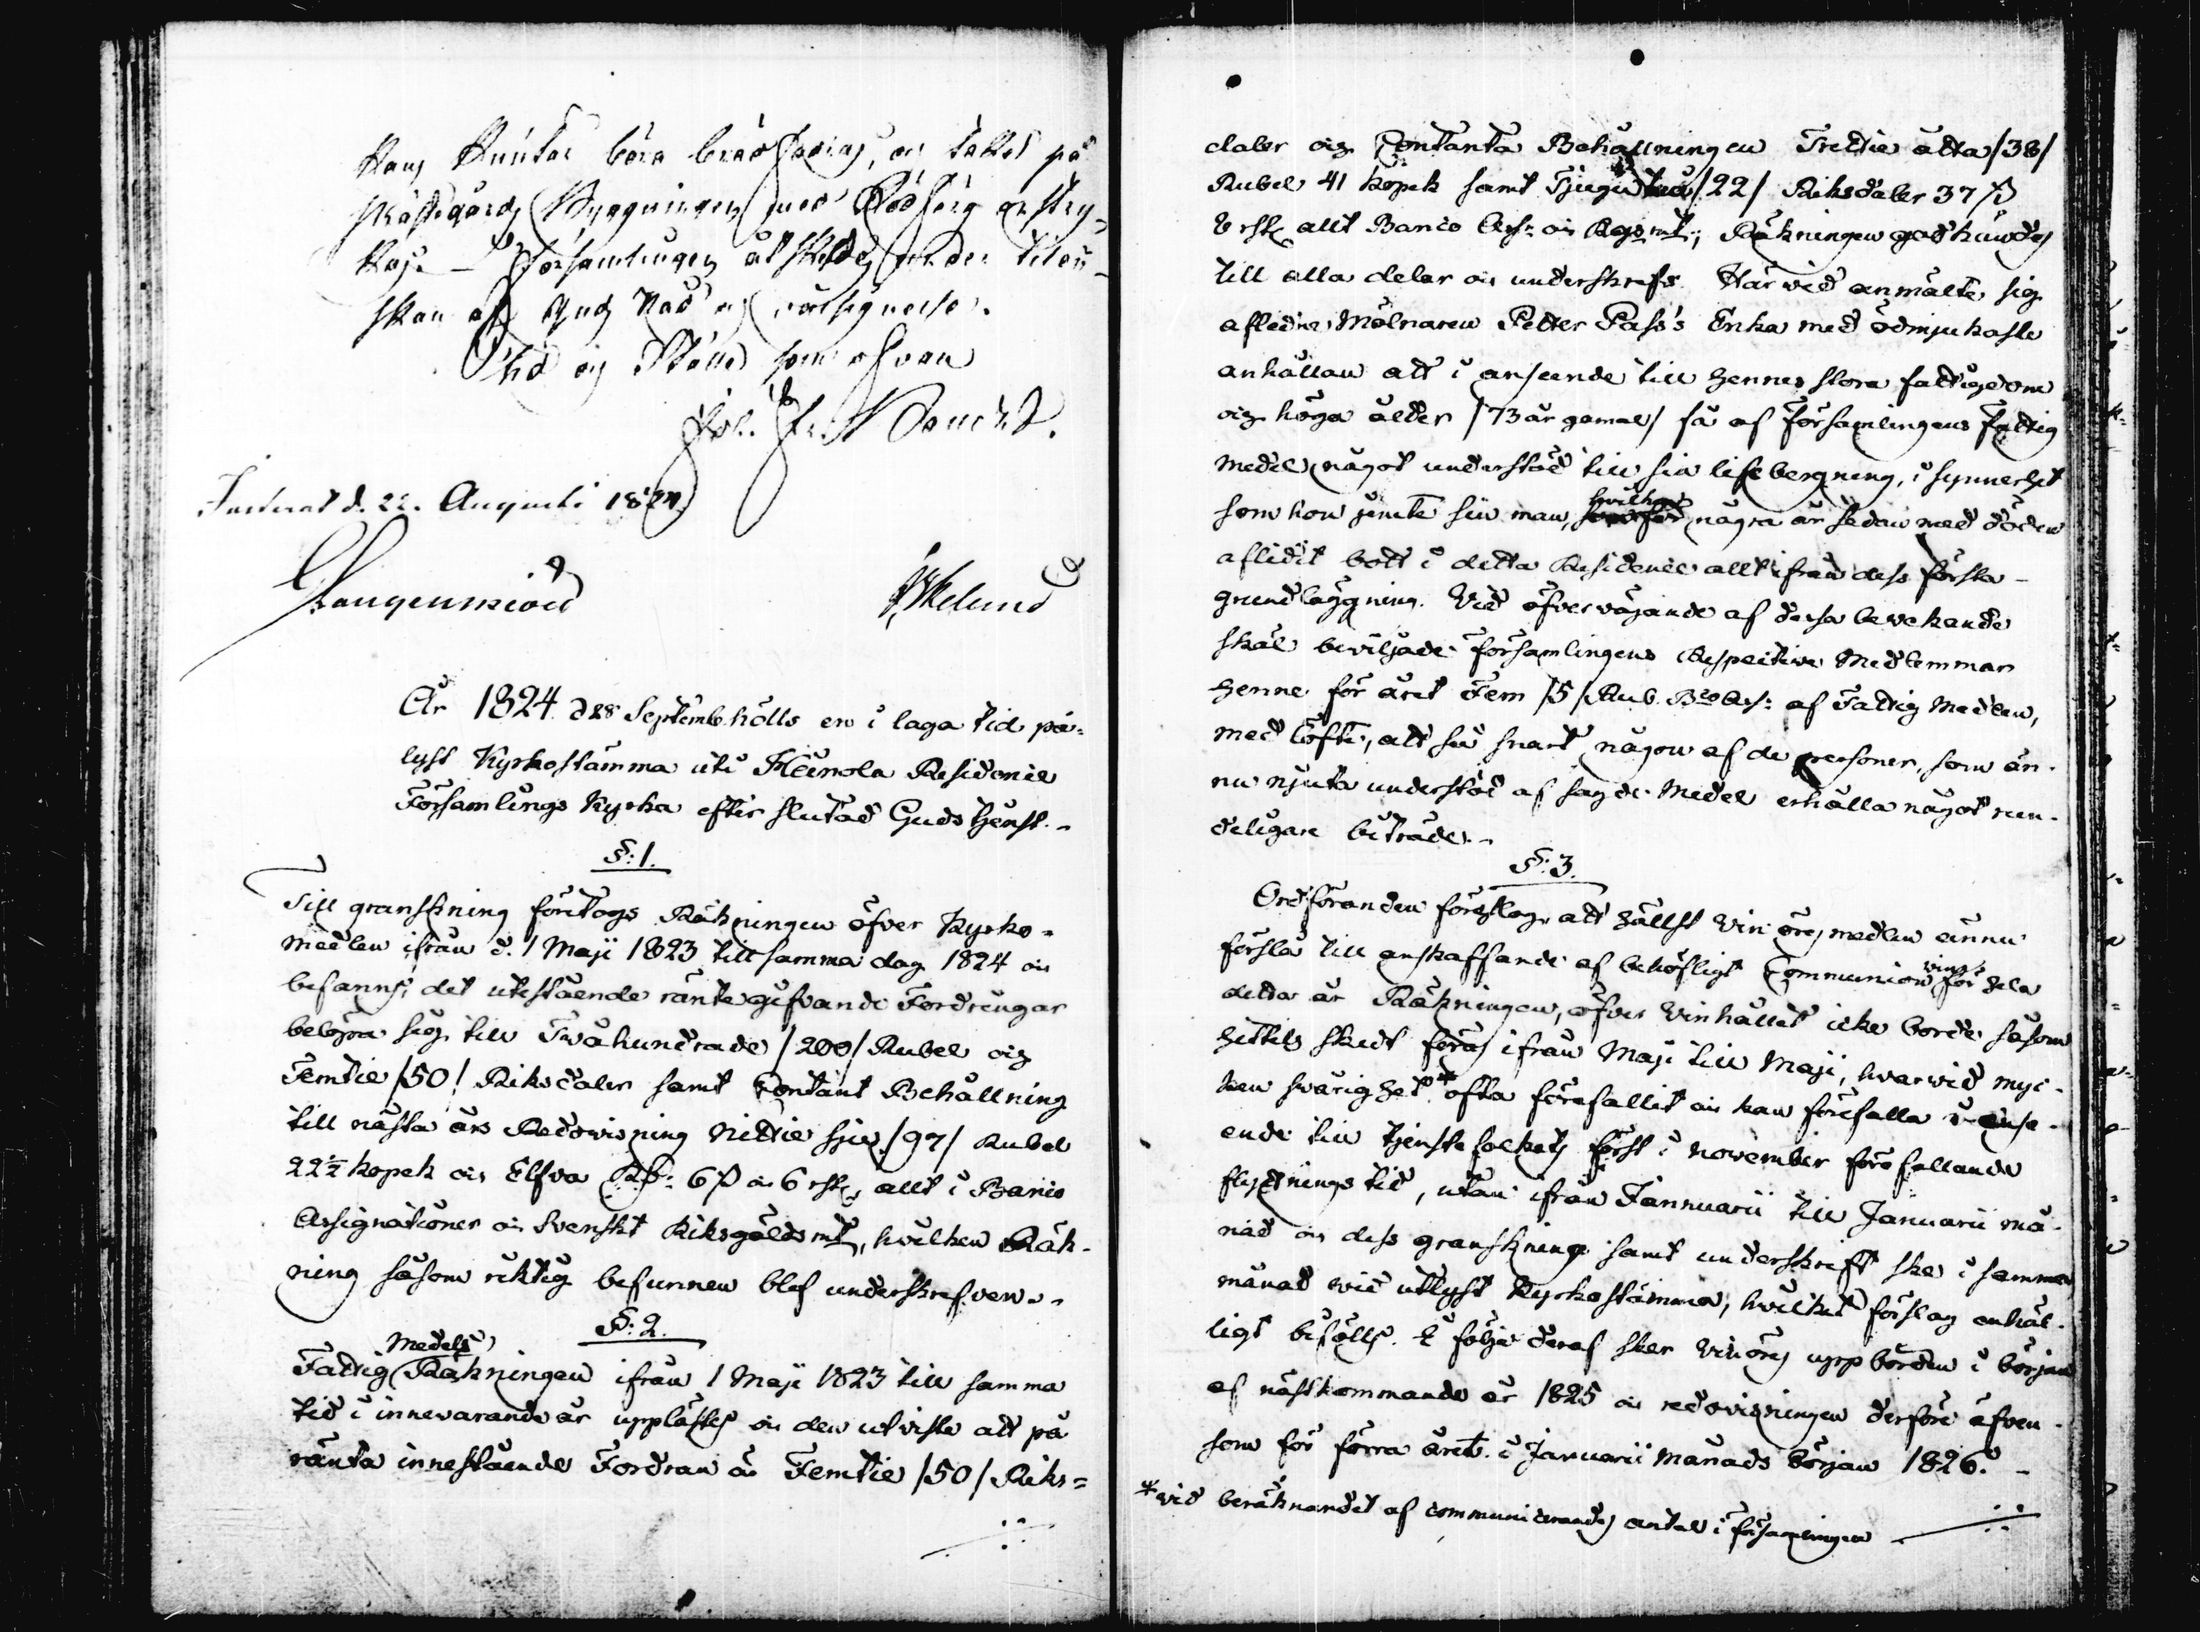 Hans Knutar böra brädfodras, och taket på
Prästegårds Byggningen med Rödfärg bestry-
kas. Församlingen åtskildes under tillön-
skan af Guds Nåd och välsignelse.
Tid och Ställe som ofvan
Joh. Fr.
Justerat d. 22. Augusti 1824
Langenskiöld Eklund
År 1824 d 28 Septemb. hölls en i laga tid på-
lyst Kyrkostämma uti Heinola Residence
Församlings Kyrka efter slutad Gudstjenst.
§: 1.
Till granskning företogs Räkningen öfver Kyrko-
medlen ifrån d. 1 Maji 1823 till samma dag 1824 och
befanns, det utestående räntegifvande Fordringar
belöpa sig till Tvåhundrade /200/ Rubel och
Femtie /50/ Riksdaler samt Contant Behållning
till nästa års Redovisning Nittie sju /97/ Rubel
22½ kopek och Elfva Rd: 6 ß och 6 rst, allt i Banco
Assignationer och Svenskt Riksgälds mt, hvilken Räk-
ning såsom riktig befunnen blef underskrefven.
§: 2.
Medels
Fattig Räkningen ifrån 1 Maji 1823 till samma
tid i innevarande år upplästes och den utviste att på
ränta innestående Fordran är Femtie /50/ Riks-
daler och Contanta Behållningen Trettie åtta /38/
Rubel 41 kopek samt Tjugutvå /22/ Riksdaler 37 ß
8 rst allt Banco Ass: och Rgs mt; Räkningen godkändes
till alla delar och underskrefs. Härvid anmälte sig
aflidne Mölnaren Petter Pass's Enka med ödmjukaste
anhållan att i anseende till hennes stora fattigdom
och höga ålder /73 år gamal/ få af Församlingens Fattig
medel något understöd till sin lifsbergning, i synnerhet
som hon jemte sin man, hvilken några år sedan med döden
aflidit bott i detta Residence allt ifrån dess första
grundläggning. Vid öfvervägande af dessa bevekande
skäl beviljade Församlingens Respective Medlemmar
henne för året Fem /5/ Rub. Bco Ass: af Fattig Medlen,
med löfte, att så snart någon af de personer, som än-
nu njuta understöd af sagde Medel erhålla något ren-
deligare biträde.
§: 3.
Ordföranden föreslog att hällst Vin öres medlen ännu
förslå till anskaffande af behöfligt Communion vin för hela
detta år Räkningen, öfver Vinhållet icke borde såsom
hittils skedt föras ifrån Maji till Maji, hvarvid myc-
ken svårighet * ofta förefallit och kan förefalla i anse-
ende till tjenstefolkets först i November förefallande
flyttningstid, utan ifrån Jannuarii till Januarii må-
nad och dess granskning samt underskrift ske i samma
månad vid utlyst Kyrkostämma, hvilket förslag enhäl-
ligt bifölls. I följe deraf sker Vinöres uppbörden i början
af nästkommande år 1825 och redovisningen derföre äfven-
som för förra året i Januarii Månads början 1826.
* vid beräknandet af communicerandes antal i församlingen